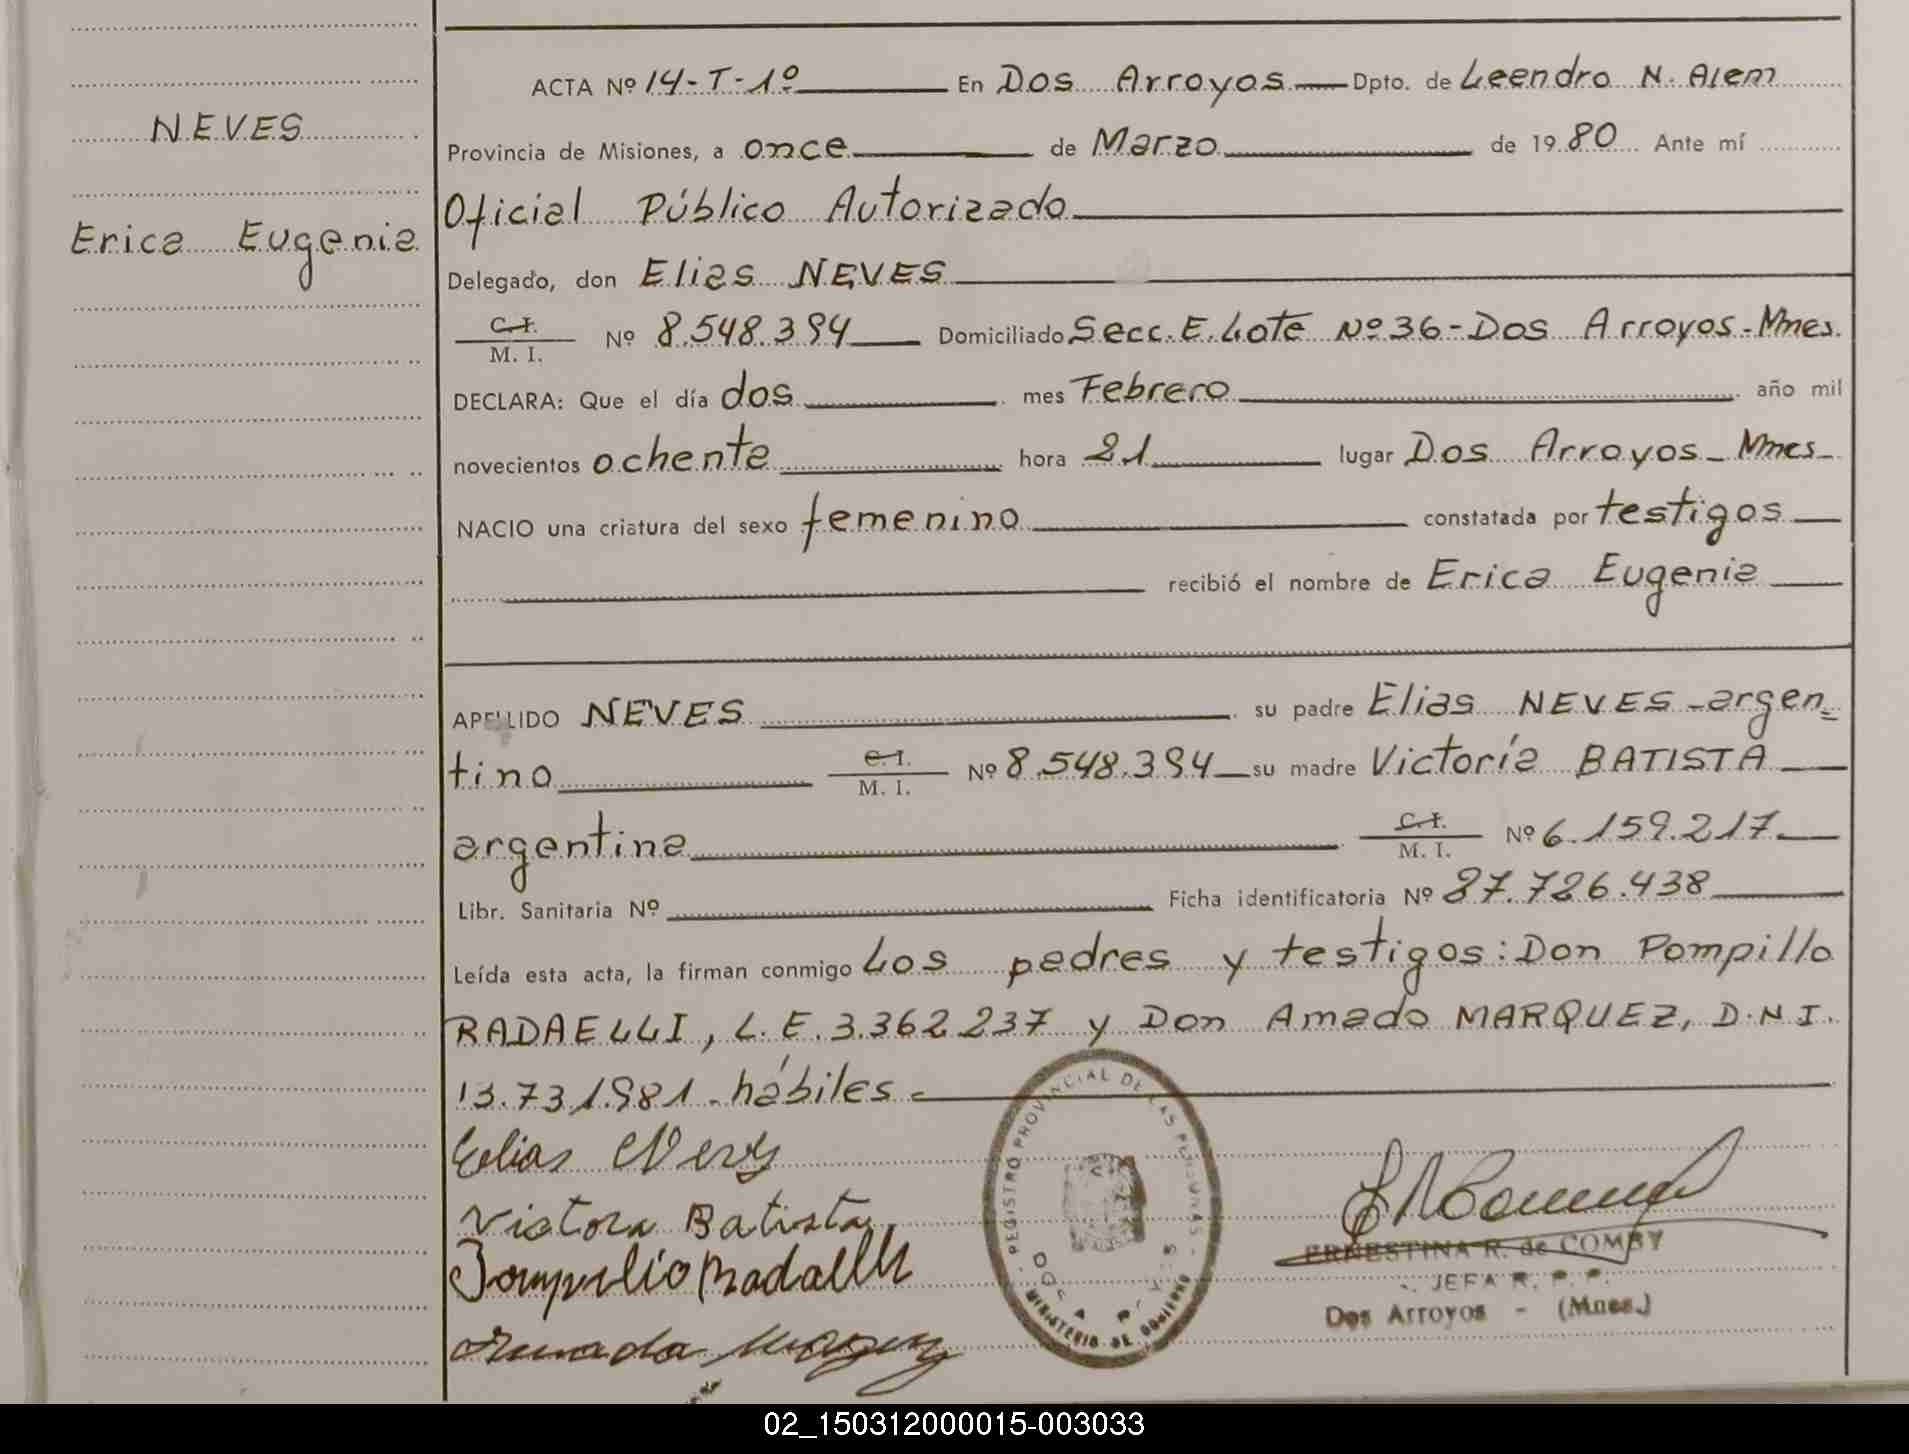 NEVES
Erica Eugenia
ACTA Nº 14-T-1º En Dos Arroyos Dpto. de Leandro N. Alem
Provincia de Misiones, a once de Marzo de 1980 Ante mí
Oficial Público Autorizado
Delegado, don Elias NEVES
C. I. / M. I. Nº 8.548.394 Domiciliado Secc. E. Lote Nº 36-Dos Arroyos-Mnes.
DECLARA: Que el día dos mes Febrero año mil
novecientos ochenta hora 21 lugar Dos Arroyos-Mnes-
NACIO una criatura del sexo femenino constatada por testigos
recibió el nombre de Erica Eugenia
APELLIDO NEVES su padre Elias NEVES-argen=
tino C. I. / M. I. Nº 8.548.394 su madre Victoria BATISTA
argentina C. I. / M. I. Nº 6.159.217
Libr. Sanitaria Nº Ficha identificatoria Nº 27.726.438
Leída esta acta, la firman conmigo Los padres y testigos: Don Pompillo
RADAELLI, L.E. 3.362.237 y Don Amado MARQUEZ, D.N.I.
13.731.981-hábiles-
Elias Neves
Victora Batista
Pompilio Radaelli
REGISTRO PROVINCIAL DE LAS PERSONAS
MINISTERIO DE GOBIERNO
ERNESTINA R. de COMBY
JEFA R. P. P.
Dos Arroyos - (Mnes.)
02_150312000015-003033